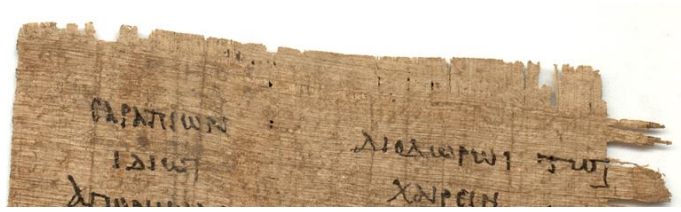 ϹΑΡΑΠΙΩΝ
ΔΙΟΔΩΡΩΙ ΤΩΙ
ΙΔΙΩΙ
ΧΑΙΡΕΙΝ